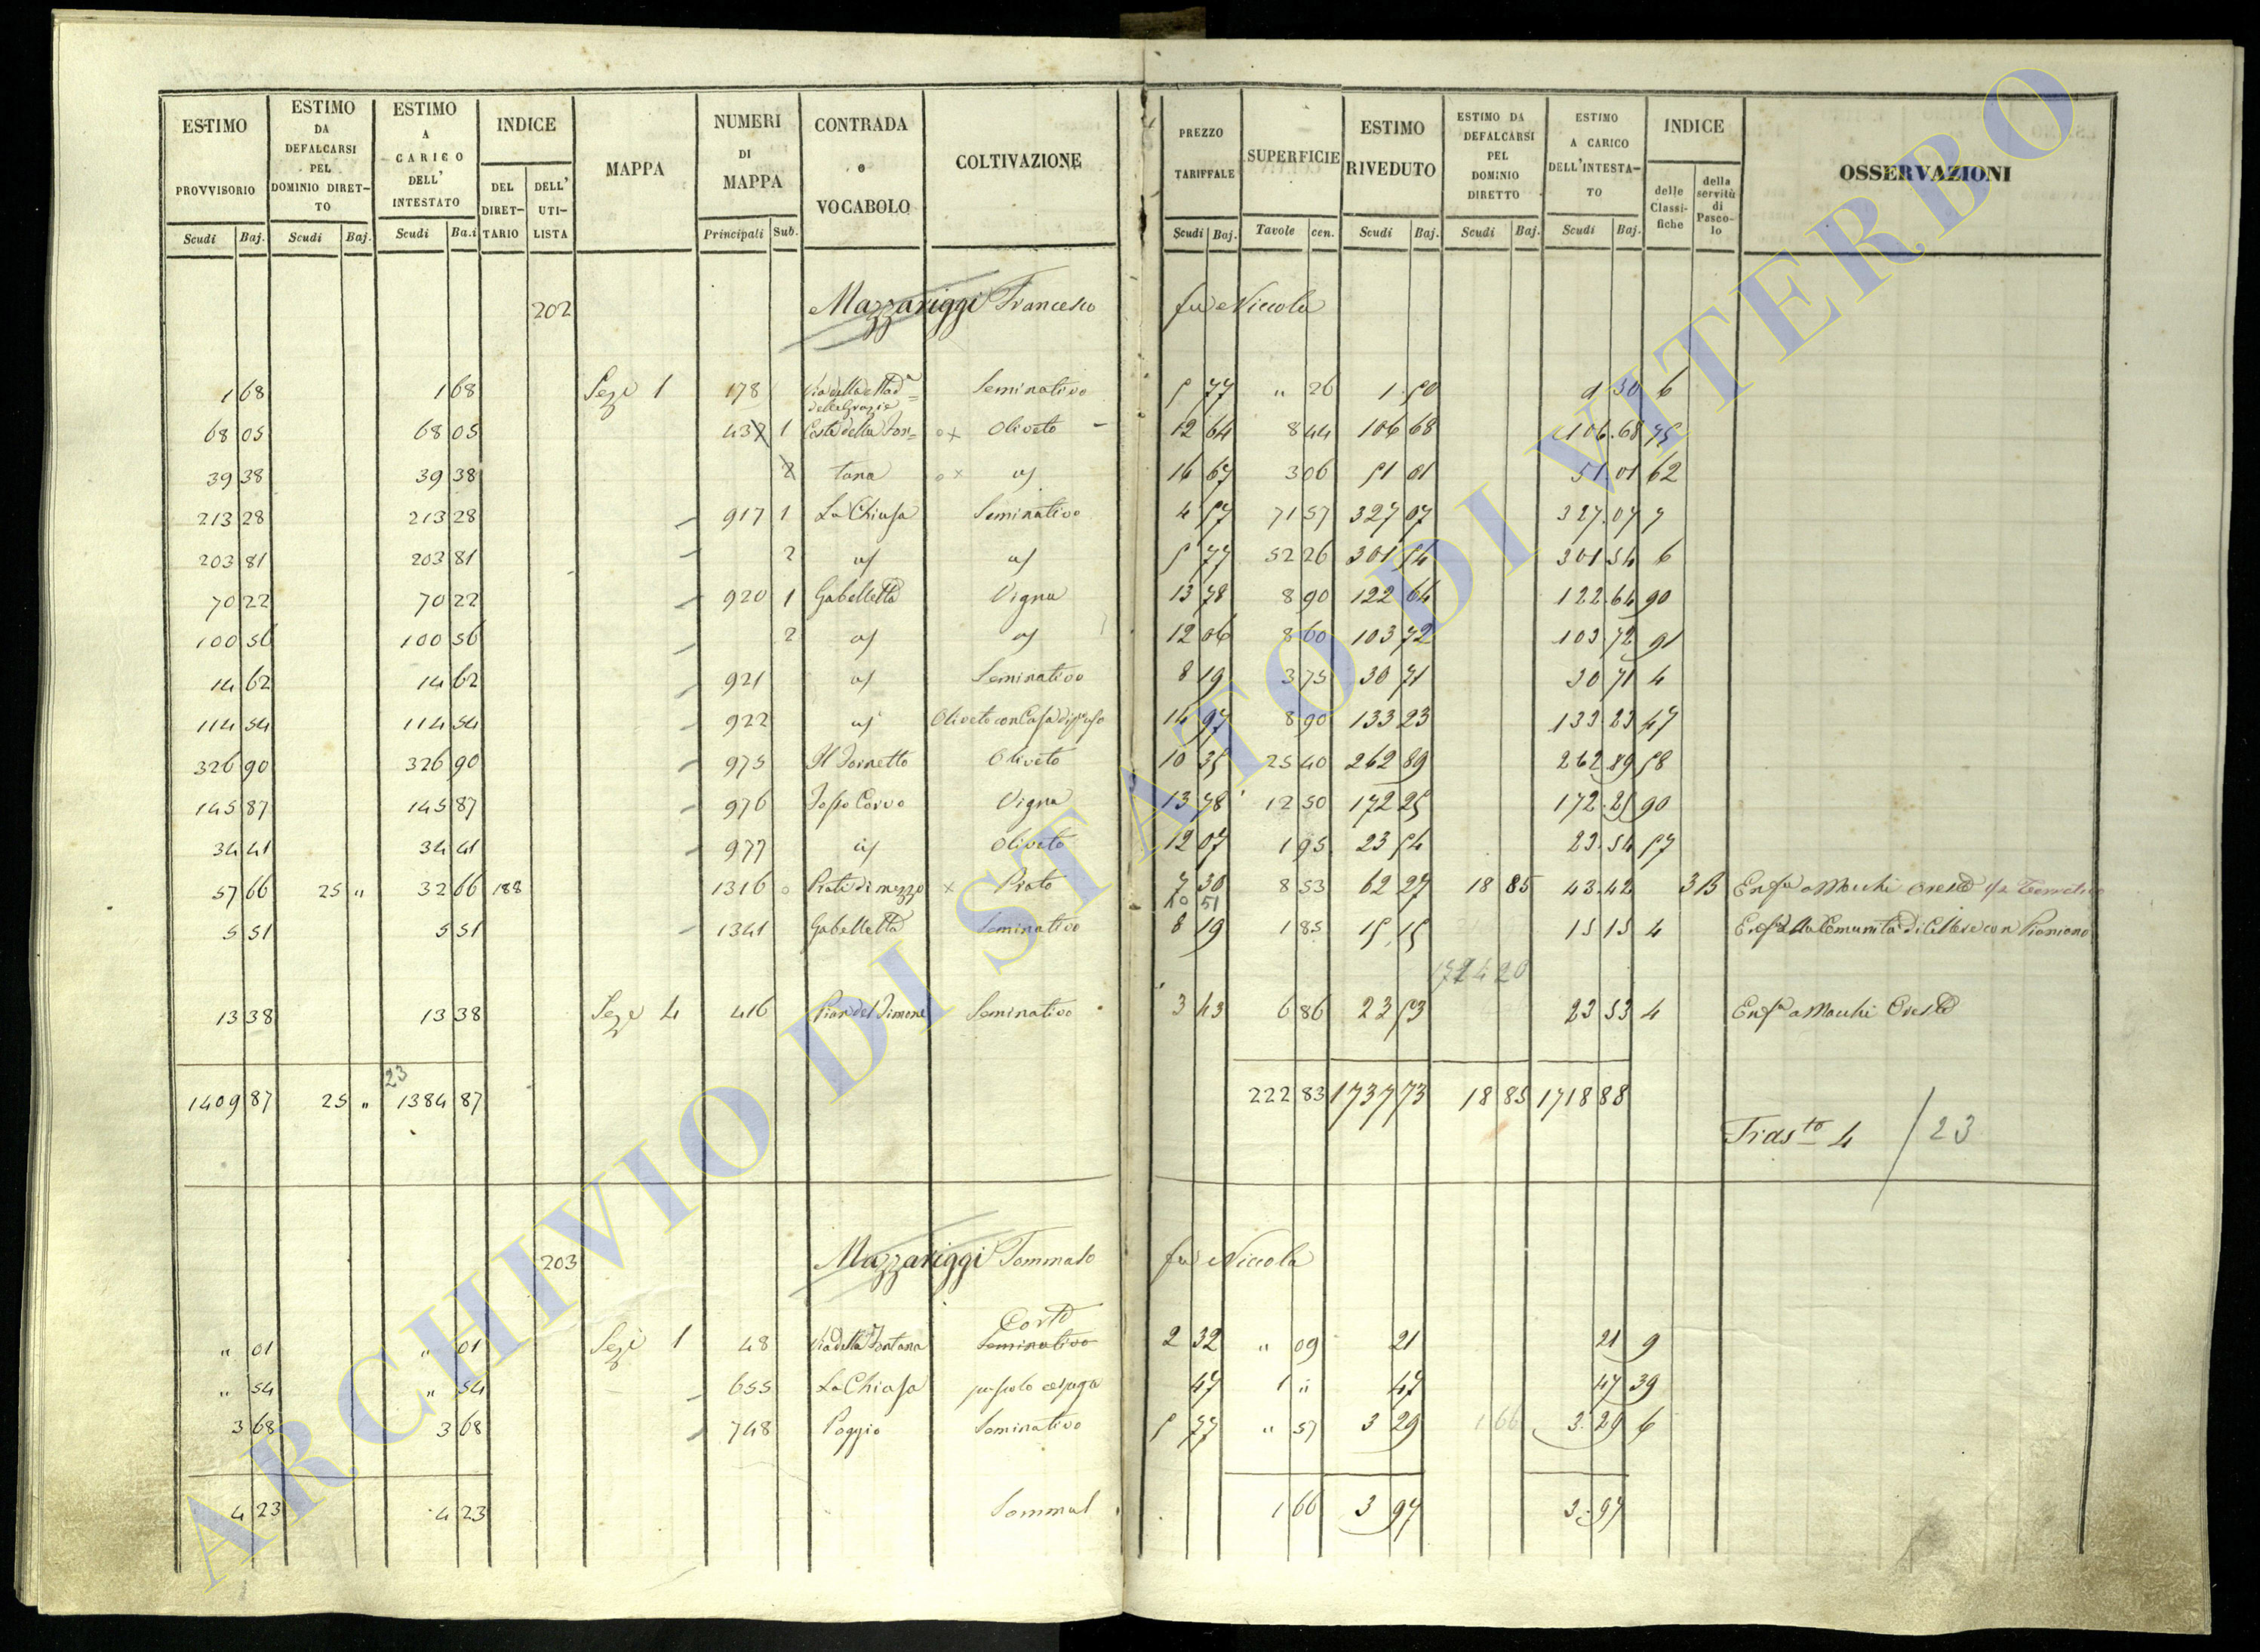 ESTIMO PROVVISORIO Scudi Baj. ESTIMO DA DEFALCARSI PEL DOMINIO DIRET-TO Scudi Baj. ESTIMO A CARICO DELL' INTESTATO Scudi Ba.i INDICE DEL DIRET-TARIO DELL' UTI-LISTA MAPPA NUMERI DI MAPPA Principali Sub. CONTRADA o VOCABOLO COLTIVAZIONE PREZZO TARIFFALE Scudi Baj. SUPERFICIE Tavole cen. ESTIMO RIVEDUTO Scudi Baj. ESTIMO DA DEFALCARSI PEL DOMINIO DIRETTO Scudi Baj. ESTIMO A CARICO DELL'INTESTA-TO Scudi Baj. INDICE delle Classi-fiche della servitù di Pasco-lo OSSERVAZIONI
202 Mazzariggi Francesco fu Niccola
1 68 1 68 Sez.e 1 178 Via della Mad.a delle Grazie Seminativo 5 77 " 26 1 50 1 50 6
68 05 68 05 437 1 Coste della Fon= Oliveto 12 64 8 44 106 68 106.68 75
39 38 39 38 2 tana 16 67 3 06 51 01 51.01 62
213 28 213 28 917 1 La Chiusa Seminativo 4 57 71 57 327 07 327.07 7
203 81 203 81 2 5 77 52 26 301 54 301 54 6
70 22 70 22 920 1 Gabelletta Vigna 13 78 8 90 122 64 122.64 90
100 56 100 56 2 12 06 8 60 103 72 103.72 91
14 62 14 62 921 Seminativo 8 19 3 75 30 71 30 71 4
114 54 114 54 922 Oliveto con Casa di p.o uso 14 97 8 90 133 23 133.23 47
326 90 326 90 975 Il Fornetto Oliveto 10 35 25 40 262 89 262.89 58
145 87 145 87 976 Fosso Corvo Vigna 13 78 12 50 172 25 172.25 90
34 41 34 41 977 Oliveto 12 07 1 95 23 54 23.54 57
57 66 25 " 32 66 188 1316 Prato di mezzo Prato 7 30 8 53 62 27 18 85 43.42 3 B Enf.a Mochi Oreste
10 51
5 51 5 51 1341 Gabelletta Seminativo 8 19 1 85 15 15 15 15 4 Enf.a alla Comunità di Cellere con Pianiano
1724 20
13 38 13 38 Sez.e 4 416 Pian del Simone Seminativo 3 43 6 86 23 53 23 53 4 Enf.a a Mochi Oreste
23
1409 87 25 " 1384 87 222 83 1737 73 18 85 1718 88
Tras.to 4 / 23
203 Mazzariggi Tommaso fu Niccola
Corte
" 01 " 01 Sez.e 1 48 Via della Fontana Seminativo 2 32 " 09 21 21 9
" 54 " 54 655 La Chiusa pascolo cespug.o 47 1 " 47 47 39
3 68 3 68 748 Poggio Seminativo 5 77 " 57 3 29 1 66 3.29 6
4 23 4 23 Sommal 1 66 3 97 3.97
ARCHIVIO DI STATO DI VITERBO